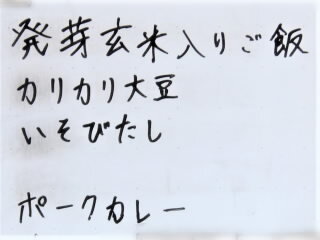 発芽玄米入りご飯
カリカリ大豆
いそびたし
ポークカレー